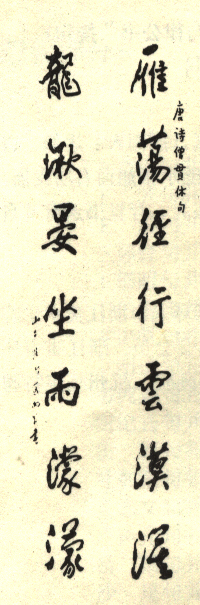 唐诗僧貫休句
雁蕩經行雲漠漠
龍湫晏坐雨濛濛